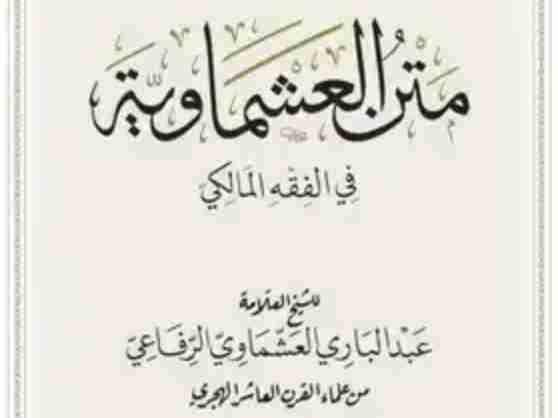 متن العشماوية
في الفقه المالكي
للشيخ العلامة
عبد الباري العشماوي الرفاعي
من علماء القرن العاشر الهجري